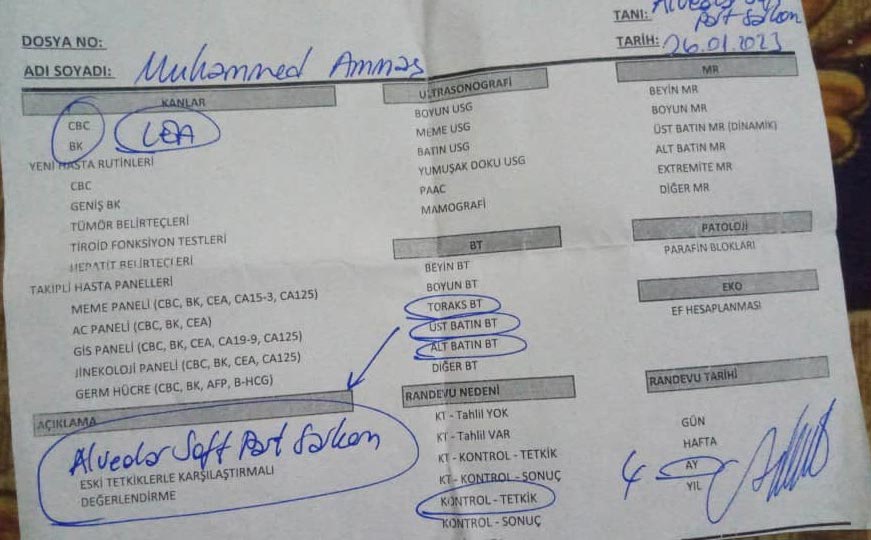 TANI: Alveolar Soft
Part Sarkom
DOSYA NO:
TARİH: 26.01.2023
ADI SOYADI: Muhammed Ammaş
KANLAR
CBC
BK
CEA
YENİ HASTA RUTİNLERİ
CBC
GENİŞ BK
TÜMÖR BELİRTEÇLERİ
TİROİD FONKSİYON TESTLERİ
HEPATİT BELİRTEÇLERİ
TAKİPLİ HASTA PANELLERİ
MEME PANELİ (CBC, BK, CEA, CA15-3, CA125)
AC PANELİ (CBC, BK, CEA)
GİS PANELİ (CBC, BK, CEA, CA19-9, CA125)
JİNEKOLOJİ PANELİ (CBC, BK, CEA, CA125)
GERM HÜCRE (CBC, BK, AFP, B-HCG)
AÇIKLAMA
Alveolar Soft Part Sarkom
ESKİ TETKİKLERLE KARŞILAŞTIRMALI
DEĞERLENDİRME
ULTRASONOGRAFİ
BOYUN USG
MEME USG
BATIN USG
YUMUŞAK DOKU USG
PAAC
MAMOGRAFİ
BT
BEYİN BT
BOYUN BT
TORAKS BT
ÜST BATIN BT
ALT BATIN BT
DİĞER BT
RANDEVU NEDENİ
KT - Tahlil YOK
KT - Tahlil VAR
KT - KONTROL - TETKİK
KT - KONTROL - SONUÇ
KONTROL - TETKİK
KONTROL - SONUÇ
MR
BEYİN MR
BOYUN MR
ÜST BATIN MR (DİNAMİK)
ALT BATIN MR
EXTREMİTE MR
DİĞER MR
PATOLOJİ
PARAFİN BLOKLARI
EKO
EF HESAPLANMASI
RANDEVU TARİHİ
GÜN
HAFTA
4 AY
YIL